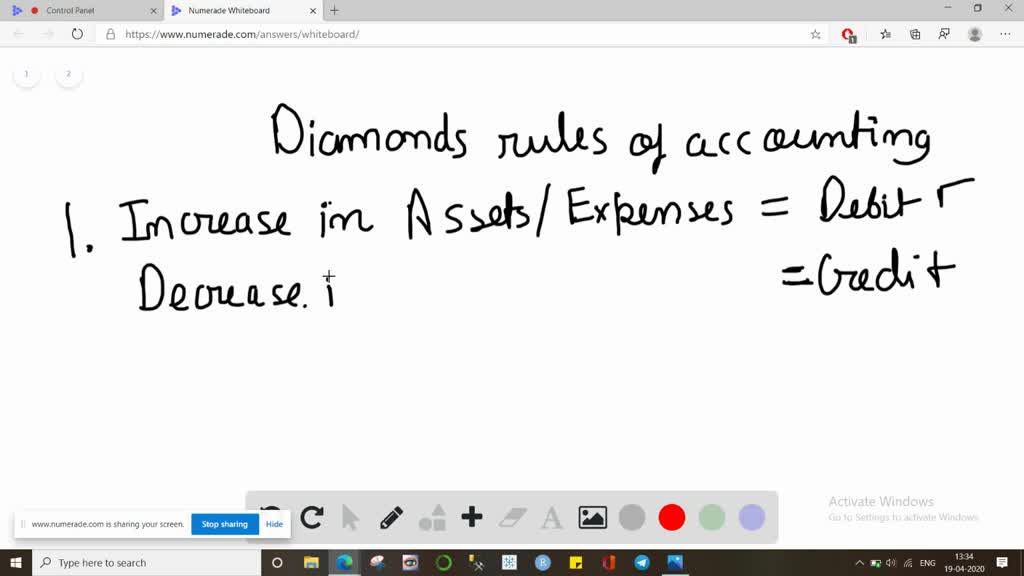 Control Panel
Numerade Whiteboard
https://www.numerade.com/answers/whiteboard/
1
2
Diamonds rules of accounting
1. Increase in Assets/Expenses = Debit
Decrease. i = Credit
Activate Windows
Go to Settings to activate Windows
www.numerade.com is sharing your screen.
Stop sharing
Hide
A
Type here to search
ENG
13:34
19-04-2020